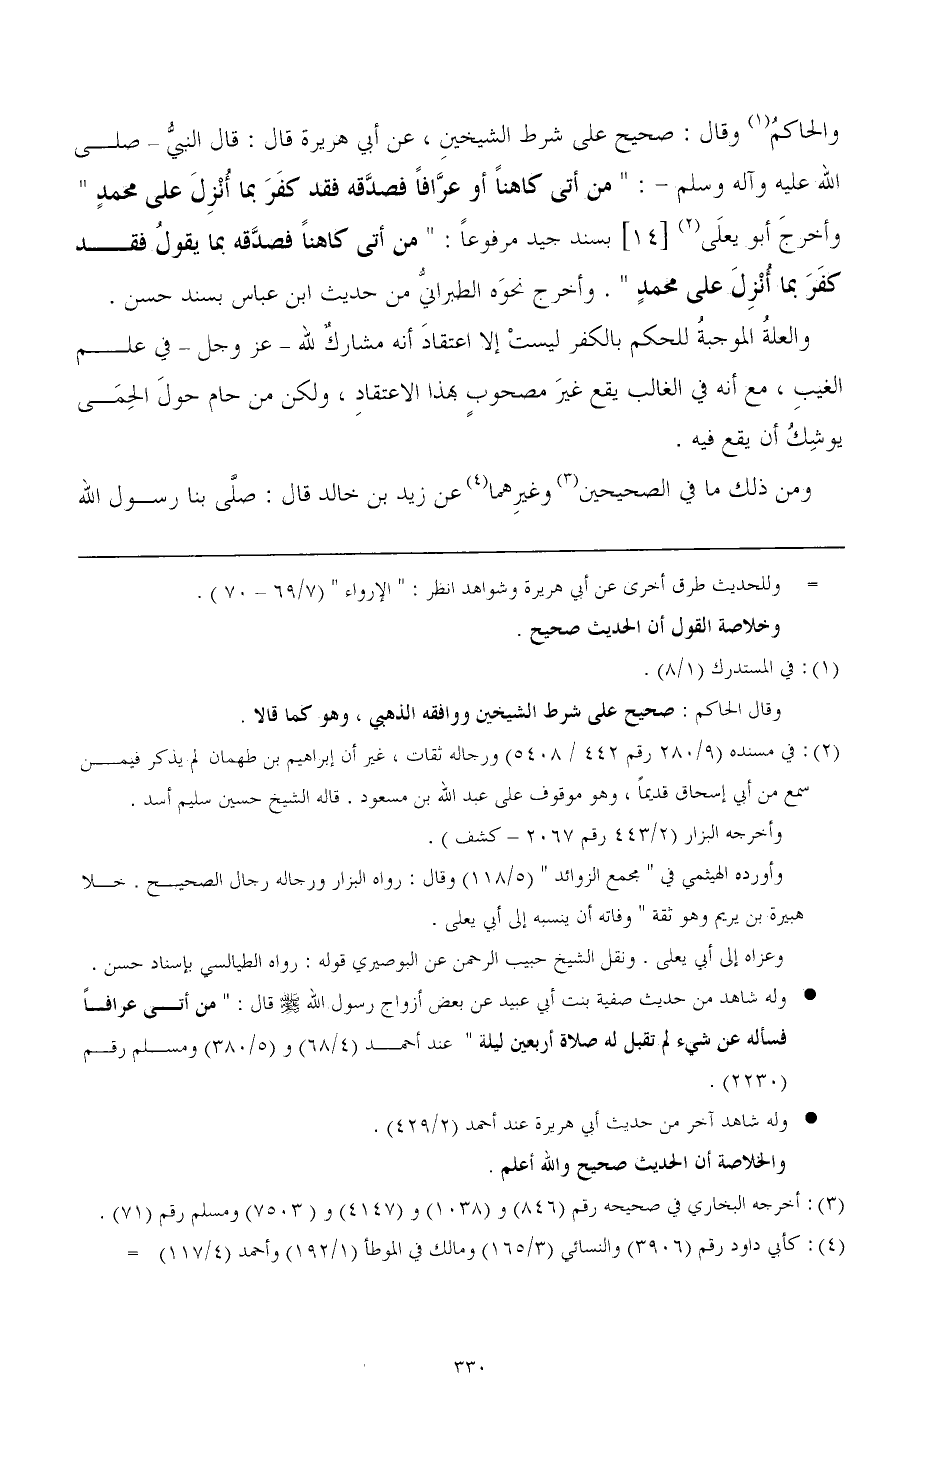 والحاكمُ(١) وقال : صحيح على شرط الشيخينِ ، عن أبي هريرة قال : قال النبيُّ – صلـــى
الله عليه وآله وسلم – : " من أتى كاهناً أو عرَّافاً فصدَّقه فقد كفَرَ بما أُنْزِلَ على محمدٍ "
وأخرجَ أبو يعلَى(٢) [١٤] بسند جيد مرفوعاً : " من أتى كاهناً فصدَّقه بما يقولُ فقــــد
كفَرَ بما أُنْزِلَ على محمدٍ " . وأخرج نحوَه الطبرانيُّ من حديث ابن عباس بسند حسن .
والعلةُ الموجبةُ للحكم بالكفر ليستْ إلا اعتقادَ أنه مشاركٌ لله – عز وجل – في علـــم
الغيبِ ، مع أنه في الغالب يقع غيرَ مصحوبٍ بهذا الاعتقادِ ، ولكن من حام حولَ الحِمَــى
يوشِكُ أن يقع فيه .
ومن ذلك ما في الصحيحين(٣) وغيرِهما(٤) عن زيد بن خالد قال : صلَّى بنا رســول الله
= وللحديث طرق أخرى عن أبي هريرة وشواهد انظر : " الإرواء " (٦٩/٧ – ٧٠) .
وخلاصة القول أن الحديث صحيح .
(١) : في المستدرك (٨/١) .
وقال الحاكم : صحيح على شرط الشيخين ووافقه الذهبي ، وهو كما قالا .
(٢) : في مسنده (٢٨٠/٩ رقم ٤٤٢ / ٥٤٠٨) ورجاله ثقات ، غير أن إبراهيم بن طهمان لم يذكر فيمـــن
سمع من أبي إسحاق قديماً ، وهو موقوف على عبد الله بن مسعود . قاله الشيخ حسين سليم أسد .
وأخرجه البزار (٤٤٣/٢ رقم ٢٠٦٧ – كشف ) .
وأورده الهيثمي في " مجمع الزوائد " (١١٨/٥) وقال : رواه البزار ورجاله رجال الصحيـــح . خـــلا
هبيرة بن يريم وهو ثقة " وفاته أن ينسبه إلى أبي يعلى .
وعزاه إلى أبي يعلى . ونقل الشيخ حبيب الرحمن عن البوصيري قوله : رواه الطيالسي بإسناد حسن .
● وله شاهد من حديث صفية بنت أبي عبيد عن بعض أزواج رسول الله ﷺ قال : " من أتـــى عرافـــاً
فسأله عن شيء لم تقبل له صلاة أربعين ليلة " عند أحمـــد (٦٨/٤) و (٣٨٠/٥) ومســـلم رقـــم
(٢٢٣٠) .
● وله شاهد آخر من حديث أبي هريرة عند أحمد (٤٢٩/٢) .
والخلاصة أن الحديث صحيح والله أعلم .
(٣) : أخرجه البخاري في صحيحه رقم (٨٤٦) و (١٠٣٨) و (٤١٤٧) و ( ٧٥٠٣) ومسلم رقم (٧١) .
(٤) : كأبي داود رقم (٣٩٠٦) والنسائي (١٦٥/٣) ومالك في الموطأ (١٩٢/١) وأحمد (١١٧/٤) =
٣٣٠